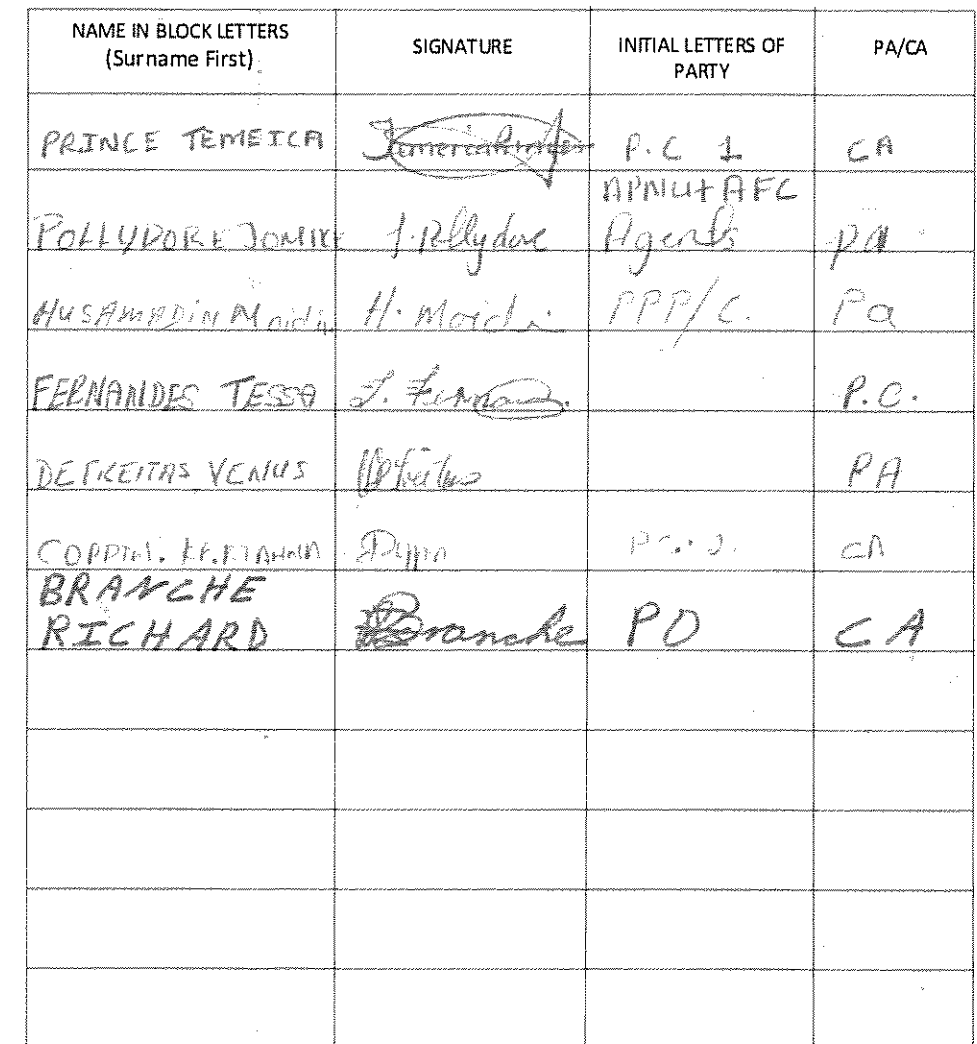 NAME IN BLOCK LETTERS
(Surname First)
SIGNATURE
INITIAL LETTERS OF
PARTY
PA/CA
PRINCE TEMEICA
P.C 1
CA
POLLYDORE JOMIKE
J. Pollydore
APNU+AFC
Agents
PA
HUSAMADIN
H.
PPP/C.
Pa
FERNANDES TESSA
P.C.
DEFREITAS VENUS
PA
CA
BRANCHE
RICHARD
Branche
PO
CA